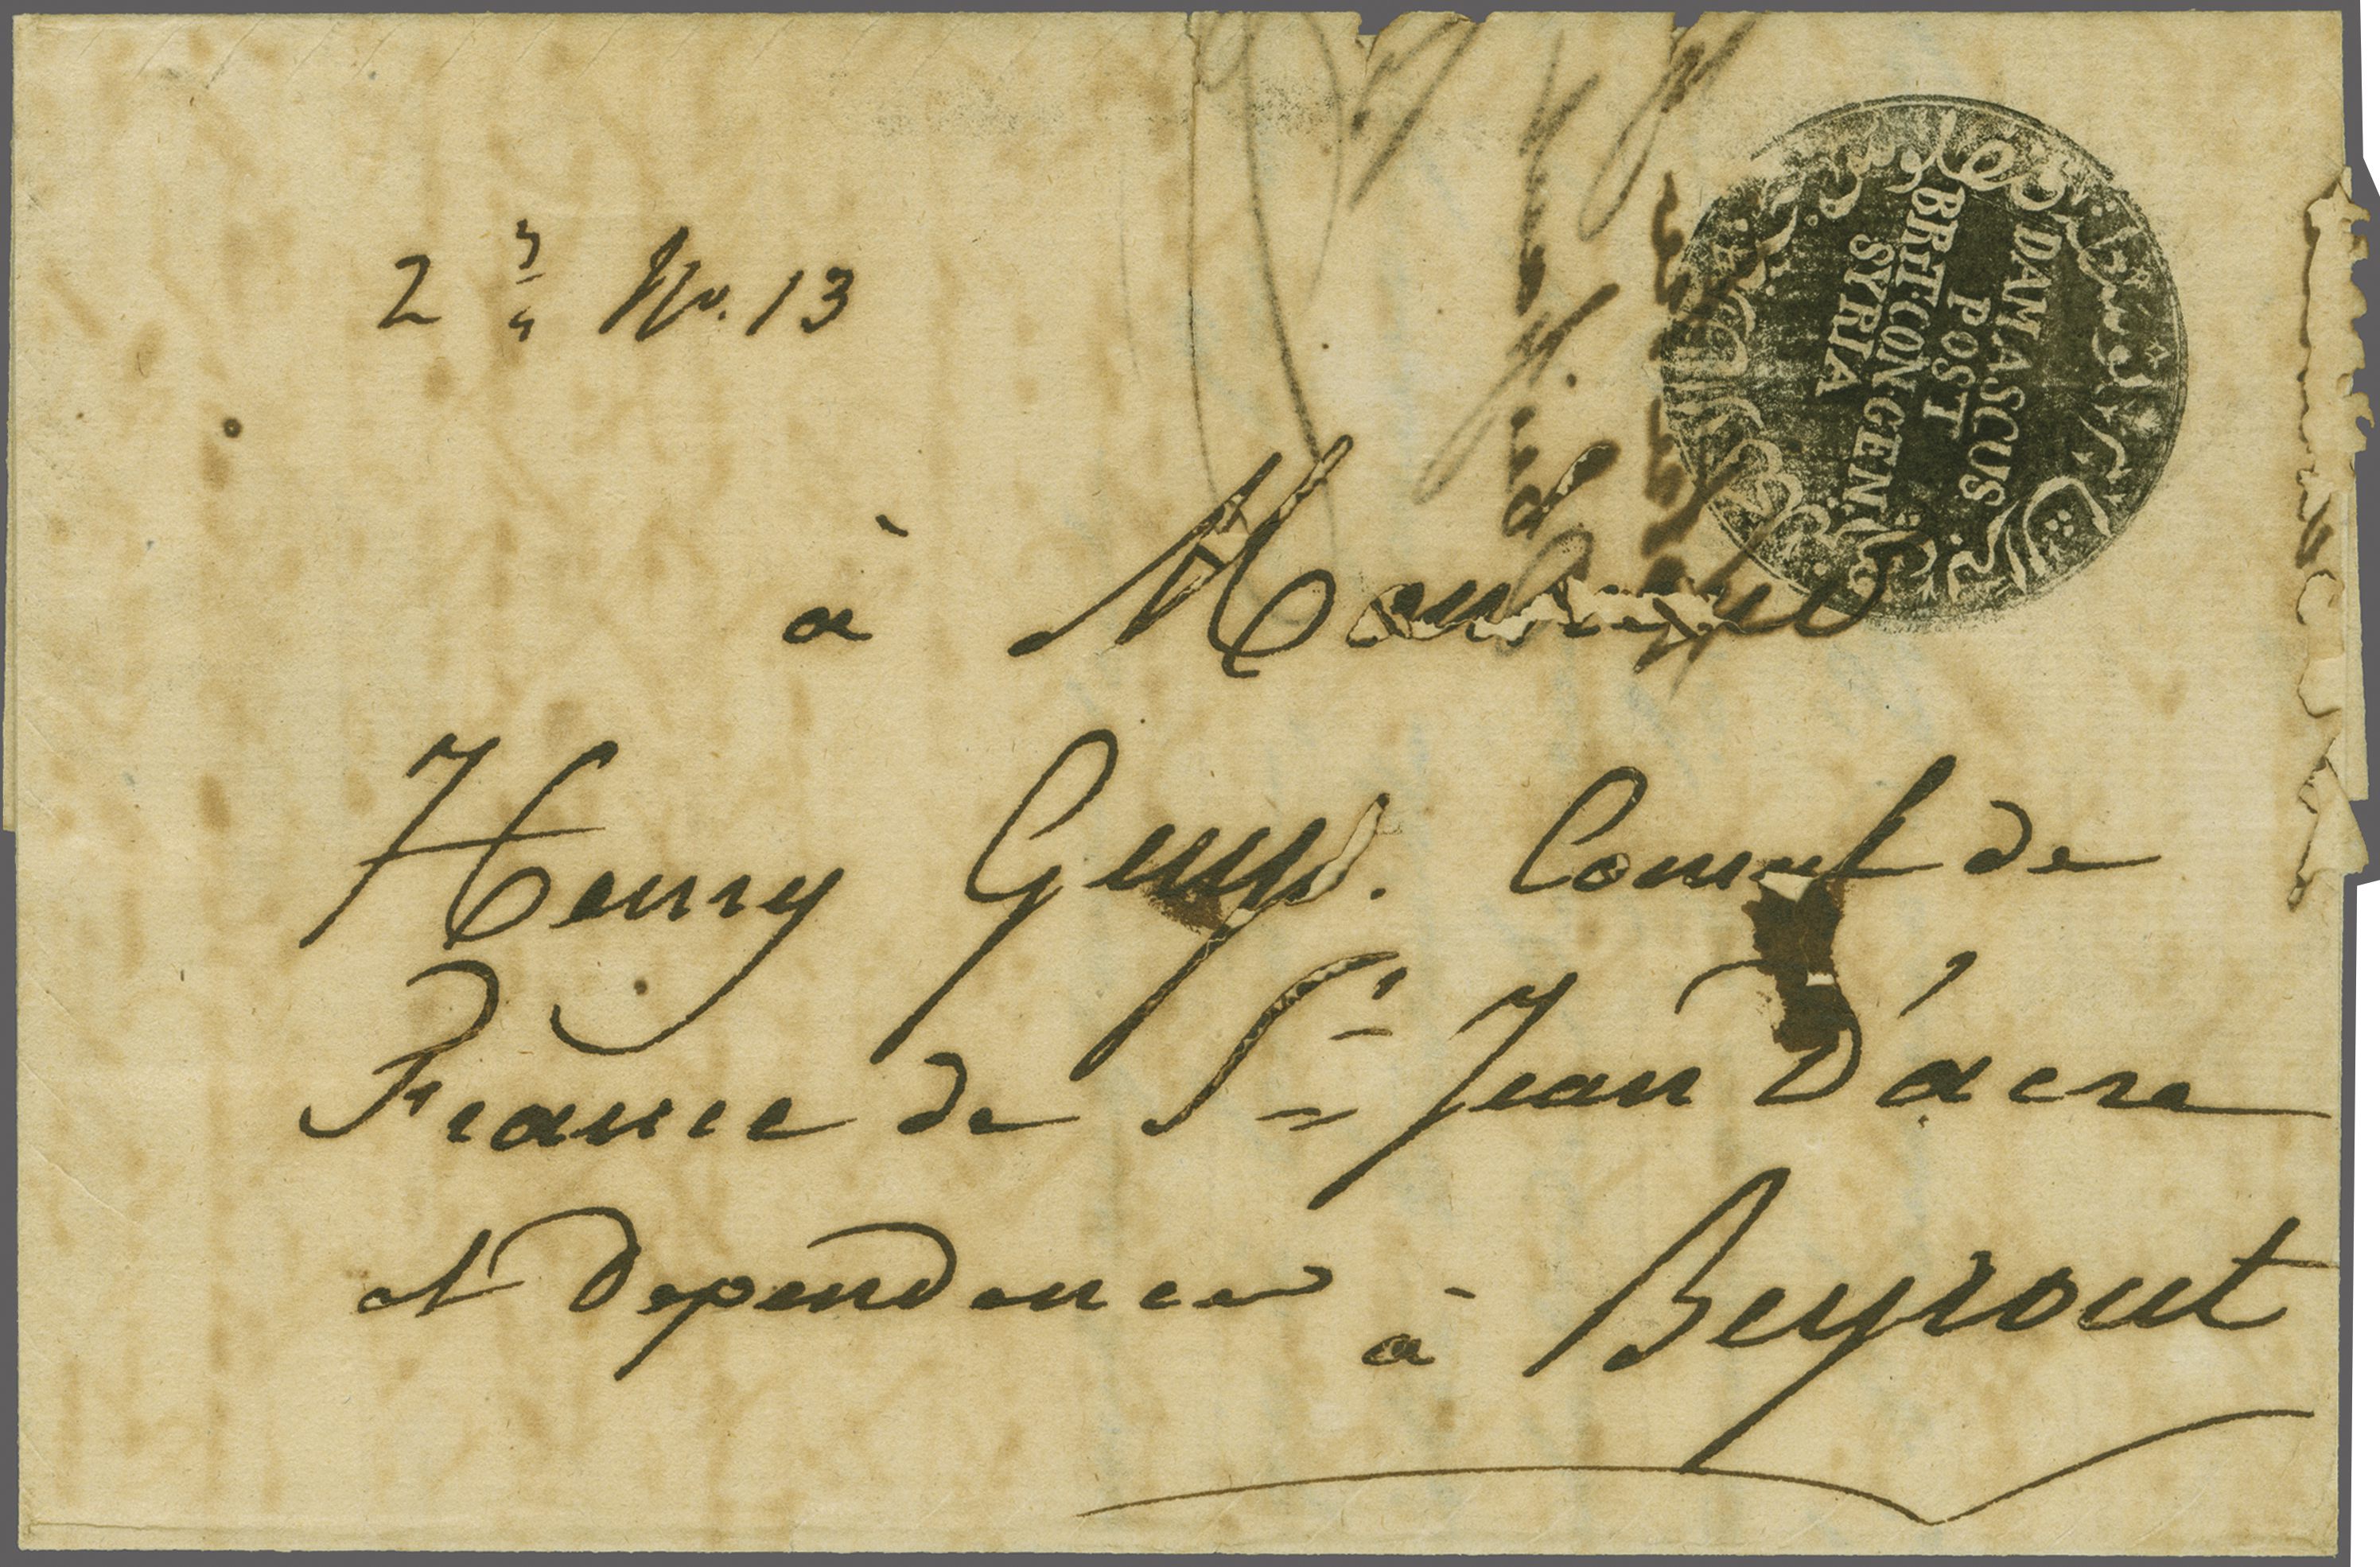 2 3/4 No. 13
DAMASCUS
POST
BRIT: CON: GEN:
SYRIA
à Monsieur
Henry Guys. Consul de
France de St Jean D'acre
et Dependences à Beyrout